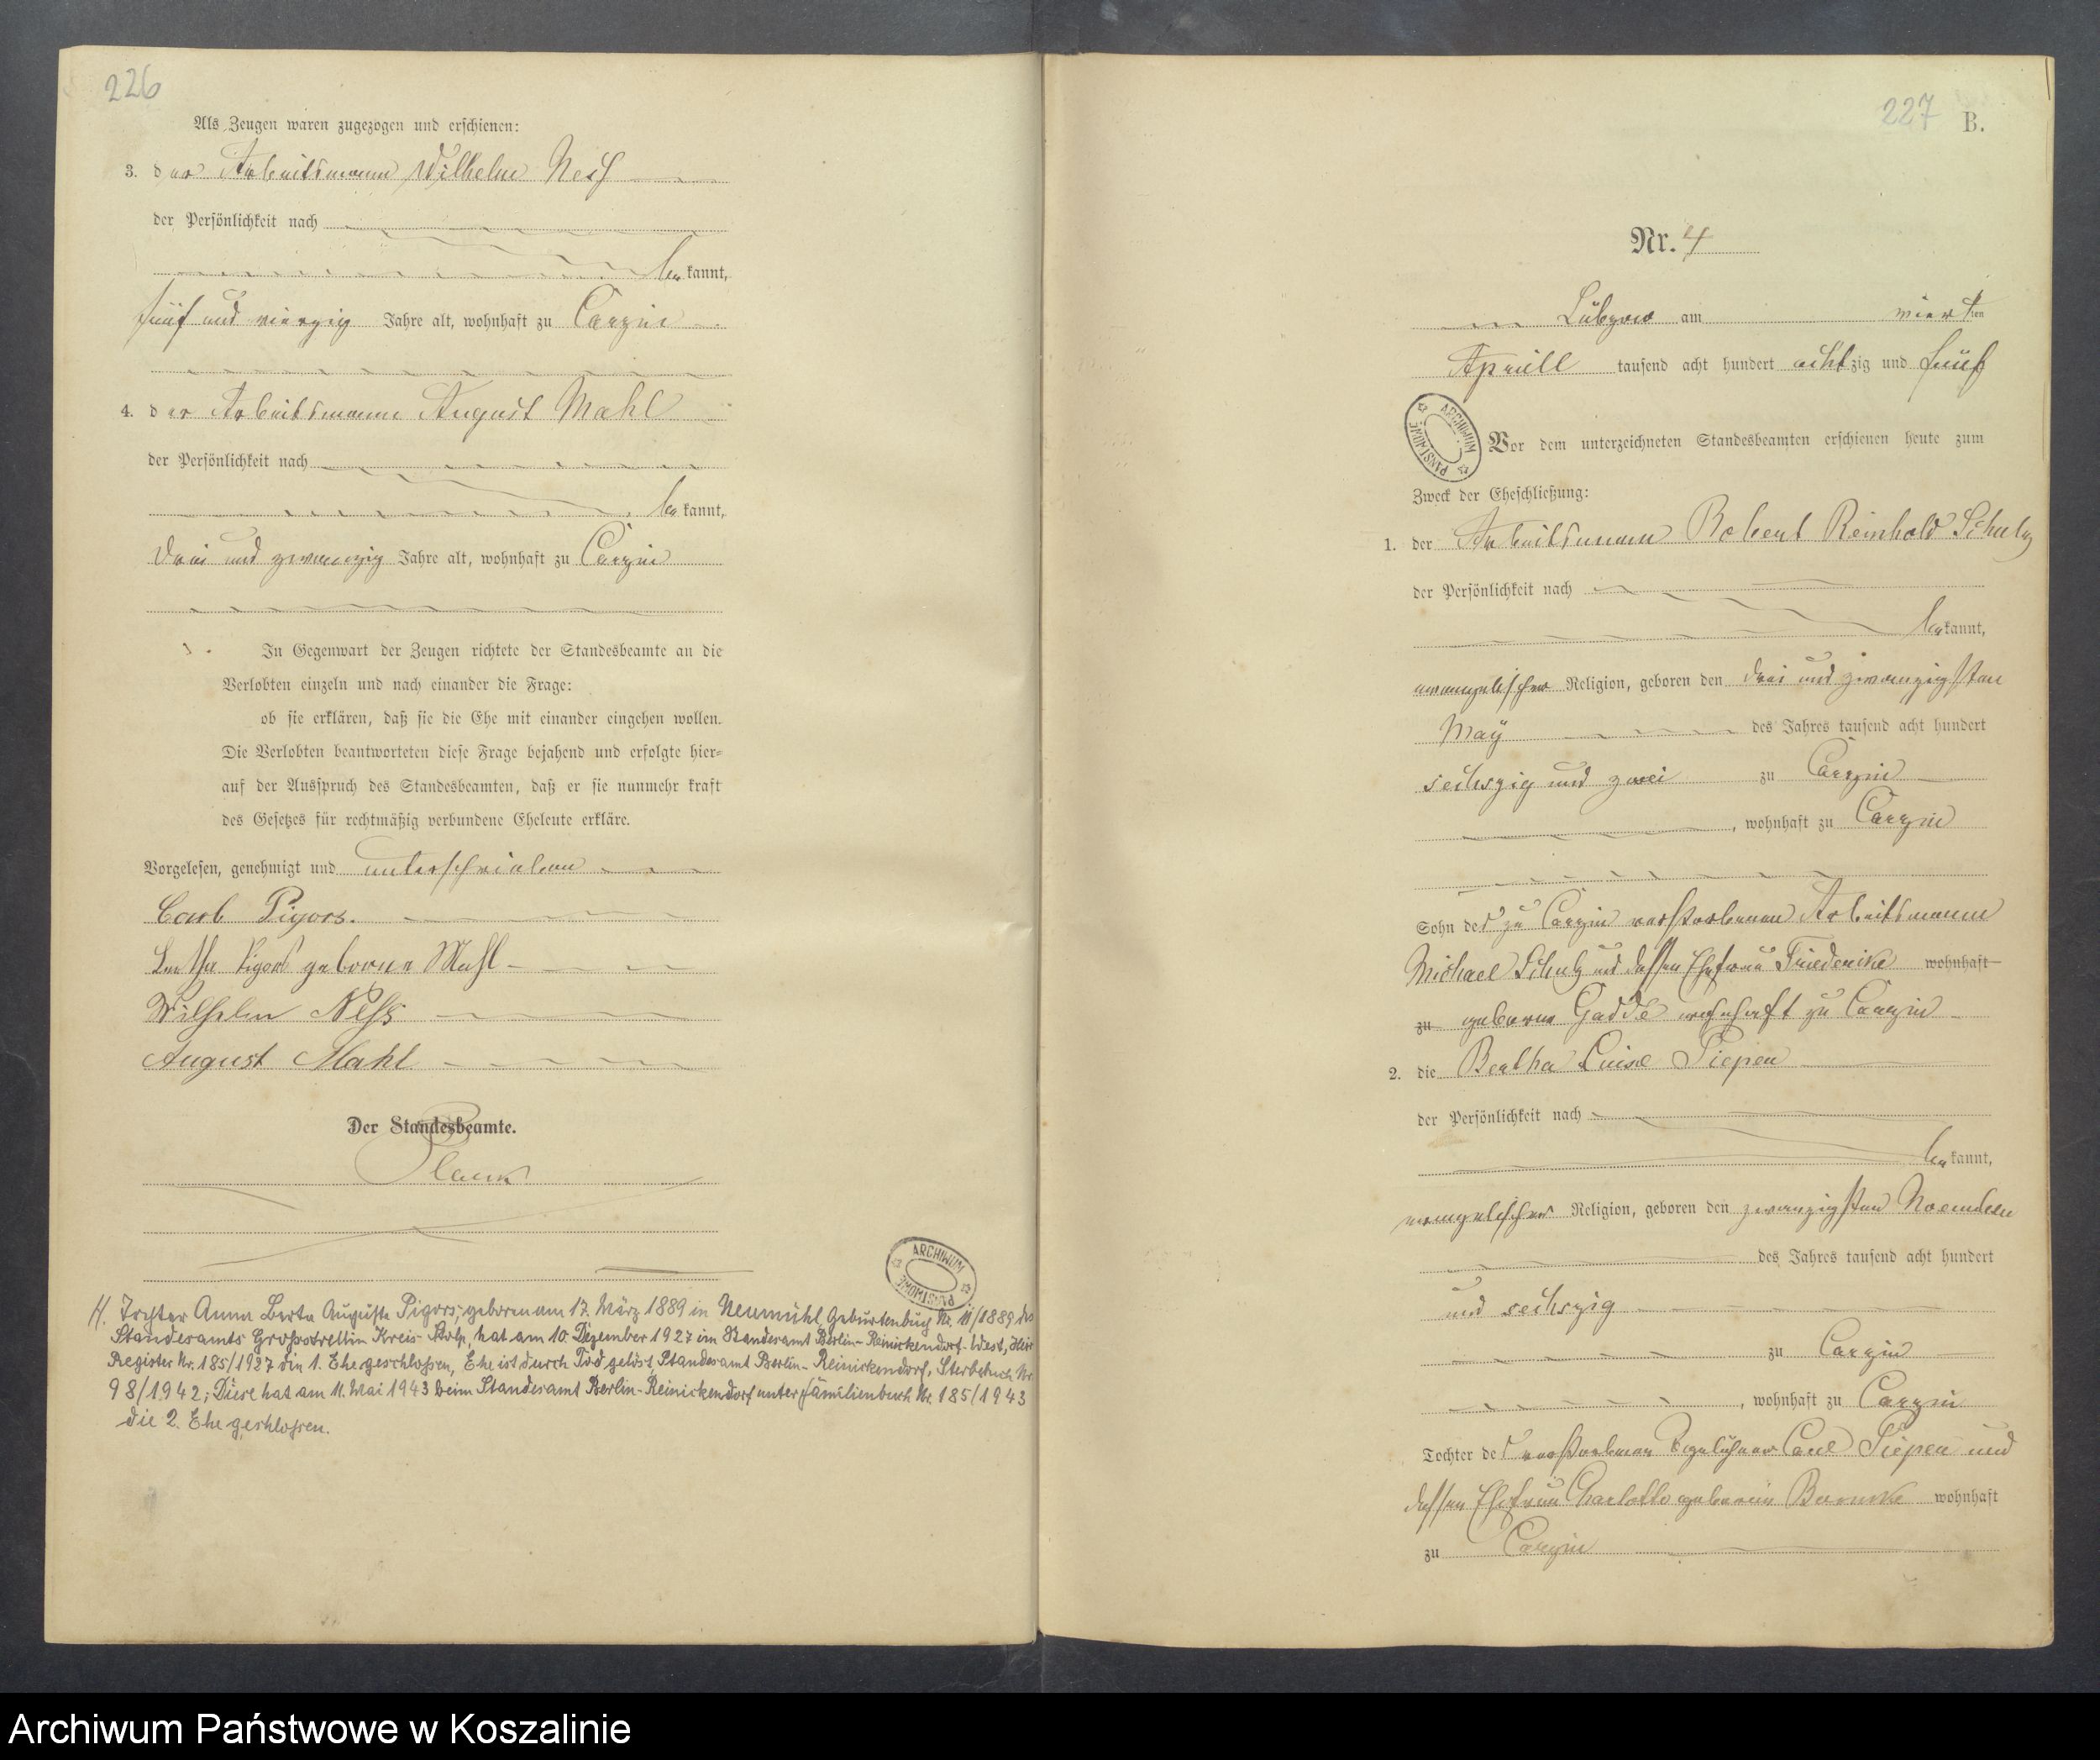 226
Als Zeugen waren zugezogen und erschienen:
3. der Arbeitsmann Wilhelm Ness
der Persönlichkeit nach
bekannt,
fünf und vierzig Jahre alt, wohnhaft zu Carzin
4. der Arbeitsmann August Mahl
der Persönlichkeit nach
bekannt,
drei und zwanzig Jahre alt, wohnhaft zu Carzin
In Gegenwart der Zeugen richtete der Standesbeamte an die
Verlobten einzeln und nach einander die Frage:
ob sie erklären, daß sie die Ehe mit einander eingehen wollen.
Die Verlobten beantworteten diese Frage bejahend und erfolgte hier-
auf der Ausspruch des Standesbeamten, daß er sie nunmehr kraft
des Gesetzes für rechtmäßig verbundene Eheleute erkläre.
Vorgelesen, genehmigt und unterschrieben
Carl Pigors.
Bertha Pigors geborne Mahl
Wilhelm Ness
August Mahl
Der Standesbeamte.
Planck
ARCHIWUM PAŃSTWOWE
H. Tochter Anna Berta Auguste Pigors, geboren am 17. März 1889 in Neumühl, Geburtenbuch Nr. 11/1889 des
Standesamts Grosstrellin Kreis Stolp, hat am 10. Dezember 1927 im Standesamt Berlin-Reinickendorf-West, Heir
Register Nr. 185/1927 die 1. Ehe geschlossen, Ehe ist durch Tod gelöst, Standesamt Berlin-Reinickendorf, Sterbebuch Nr.
98/1942; Diese hat am 11. Mai 1943 beim Standesamt Berlin-Reinickendorf unter Familienbuch Nr. 185/1943
die 2. Ehe geschlossen.
227 B.
Nr. 4
Lübzow am vierten
Aprill tausend acht hundert achtzig und fünf
ARCHIWUM PAŃSTWOWE
Vor dem unterzeichneten Standesbeamten erschienen heute zum
Zweck der Eheschließung:
1. der Arbeitsmann Robert Reinhold Schulz
der Persönlichkeit nach
bekannt,
evangelischer Religion, geboren den drei und zwanzigsten
May des Jahres tausend acht hundert
sechszig und zwei zu Carzin
, wohnhaft zu Carzin
Sohn des zu Carzin verstorbenen Arbeitsmann
Michael Schulz und dessen Ehefrau Friederike wohnhaft
zu geborne Gadde wohnhaft zu Carzin
2. die Bertha Luise Piepen
der Persönlichkeit nach
bekannt,
evangelischer Religion, geboren den zwanzigsten November
des Jahres tausend acht hundert
und sechszig
zu Carzin
, wohnhaft zu Carzin
Tochter des verstorbenen Carl Piepen und
dessen Ehefrau Charlotte geborene wohnhaft
zu Carzin
Archiwum Państwowe w Koszalinie